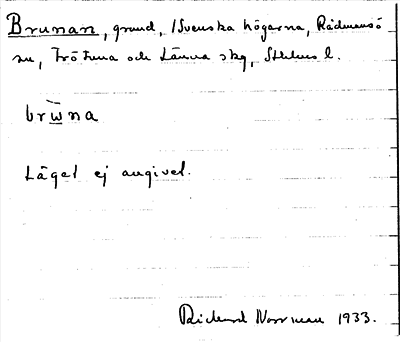 Brunan, grund, i Svenska högarna, Rådmansö
sn, Frötuna och Länna skg, Sthlms l.
brẁna
Läget ej angivet.
Rickard Norrman 1933.